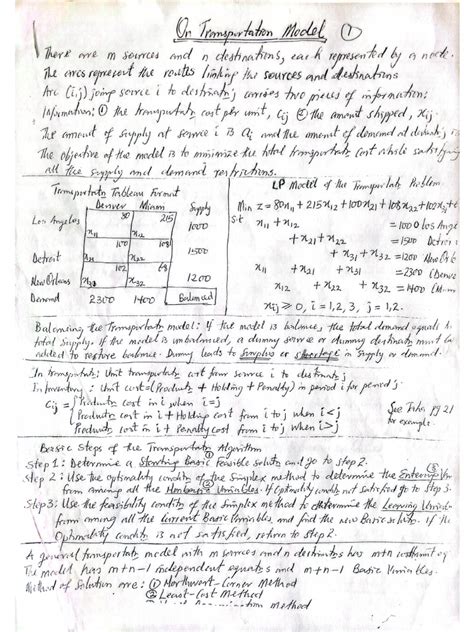 On Transportation Model ①
There are m sources and n destinations, each represented by a node.
The arcs represent the routes linking the sources and destinations
Arc (i,j) joing source i to destinatn j carries two pieces of information:
Information: ① the transportatn cost per unit, Cij ② the amount shipped, Xij.
The amount of supply at source i is ai and the amount of demand at destinatn j is
The objective of the model is to minimize the total transportatn cost while satisfying
all the supply and demand restrictions.
Transportatn Tableau Format
Denver Miami Supply
Los Angeles 80 215 1000
x11 x12
Detroit 100 108 1500
x21 x22
New Orleans 102 68 1200
x31 x32
Demand 2300 1400 Balanced
LP Model of the Transportatn Problem
Min z = 80x11 + 215x12 + 100x21 + 108x22 + 102x31 +
s.t x11 + x12 = 1000 (Los Ange
+ x21 + x22 = 1500 Detroi
+ x31 + x32 = 1200 New Orle
x11 + x21 + x31 = 2300 (Denve
x12 + x22 + x32 = 1400 (Miam
xij ≥ 0, i = 1,2,3, j = 1,2.
Balancing the Transportatn model: if the model is balance, the total demand equals to
total supply. if the model is unbalanced, a dummy source or dummy destinatn must be
added to restore balance. Dummy leads to surplus or shortage in supply or demand.
In transportatn: Unit transportatn cost from source i to destinatn j
In inventory: Unit cost (Products + Holding + Penalty) in period i for period j
Cij = Productn cost in i when i=j
Productn cost in i + Holding cost from i to j when i<j
Productn cost in i + Penalty cost from i to j when i>j
See Taha pg 21
for example.
Basic Steps of the Transportatn Algorithm
Step 1: Determine a Starting Basic feasible solutn and go to step 2.
Step 2: Use the optimality conditn of the Simplex method to determine the Entering Var
from among all the Nonbasic Variables. if Optimality conditn not satisfied go to Step 3.
Step 3: Use the feasibility conditn of the simplex method to determine the Leaving Variab
from among all the current Basic Variables, and find the new Basic solutn. if the
Optimality conditn is not satisfied, return to step 2.
A general transportatn model with m sources and n destinatns has m+n constraint eq
The model has m+n-1 independent equatns and m+n-1 Basic Variables.
Method of Solution are: ① Northwest-Corner Method
② Least-Cost Method
Method